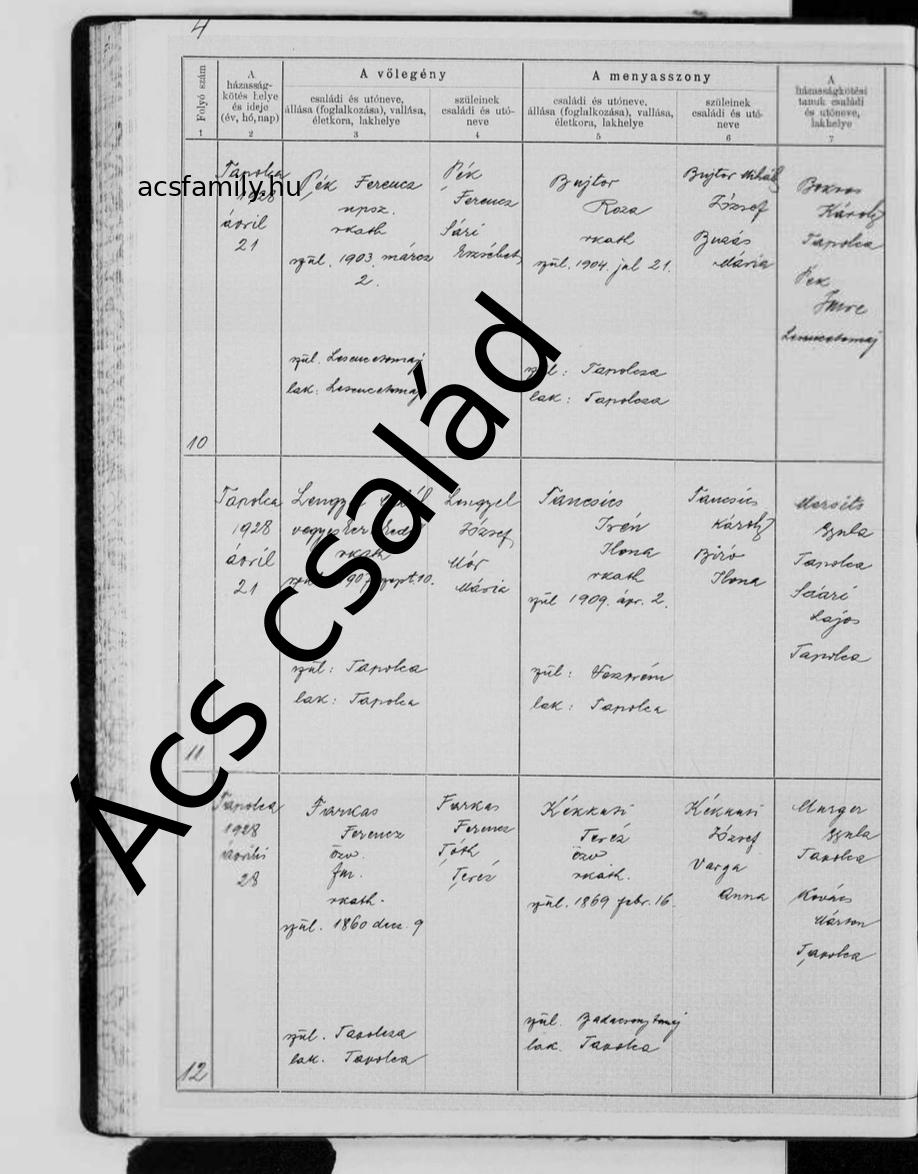 4
Folyó szám
A
házasság-
kötés helye
és ideje
(év, hó, nap)
A vőlegény
családi és utóneve,
állása (foglalkozása), vallása,
életkora, lakhelye
szüleinek
családi és utó-
neve
A menyasszony
családi és utóneve,
állása (foglalkozása), vallása,
életkora, lakhelye
szüleinek
családi és utó-
neve
A
házasságkötési
tanuk családi
és utóneve,
lakhelye
1 2 3 4 5 6 7
acsfamily.hu
10
Tapolca
1928
ápril
21
Pék Ferencz
npsz.
rkath
szül. 1903. márcz
2.
szül. Lesencetomaj
lak: Lesencetomaj
Pék
Ferencz
Sári
Erzsébet
Bujtor
Roza
rkath
szül. 1904. jul 21.
szül: Tapolcza
lak: Tapolcza
Bujtor Mihály
József
Buzás
Mária
Bokros
Károly
Tapolca
Pék
Imre
Lesencetomaj
11
Tapolca
1928
ápril
21
Lengyel
rkath
szül: Tapolca
lak: Tapolca
Lengyel
József
Mór
Mária
Tancsics
Irén
Ilona
rkath
szül 1909. ápr. 2.
szül: Veszprém
lak: Tapolca
Tancsics
Károly
Biró
Ilona
Gyula
Tapolca
Lajos
Tapolca
12
Tapolca
1928
április
28
Farkas
Ferencz
özv.
fm.
rkath.
szül. 1860 dec. 9
szül. Tapolcza
lak. Tapolca
Farkas
Ferencz
Tóth
Teréz
Kékkuti
Teréz
özv
rkath.
szül. 1869 febr. 16.
szül. Badacsonytomaj
lak. Tapolca
Kékkuti
József
Varga
Anna
Gyula
Tapolca
Kovács
Márton
Tapolca
Ács család